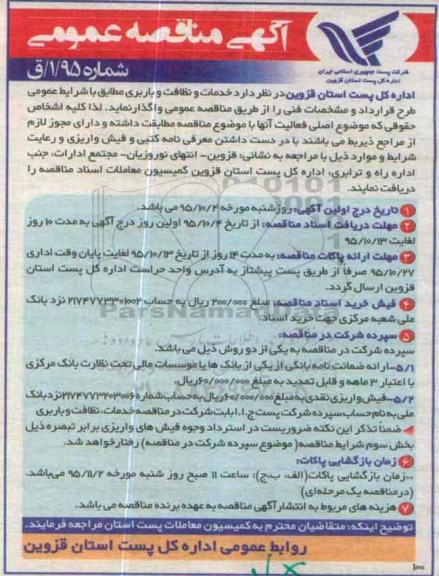 آگهی مناقصه عمومی
شرکت پست جمهوری اسلامی ایران
اداره کل پست استان قزوین
شماره ۹۵/۱/ق
اداره کل پست استان قزوین در نظر دارد خدمات و نظافت و باربری مطابق با شرایط عمومی
طرح قرارداد و مشخصات فنی را از طریق مناقصه عمومی واگذار نماید. لذا کلیه اشخاص
حقوقی که موضوع اصلی فعالیت آنها با موضوع مناقصه مطابقت داشته و دارای مجوز لازم
از مراجع ذیربط می باشند با در دست داشتن معرفی نامه کتبی و فیش واریزی و رعایت
شرایط و موارد ذیل با مراجعه به نشانی: قزوین- انتهای نوروزیان- مجتمع ادارات، جنب
اداره راه و ترابری، اداره کل پست استان قزوین کمیسیون معاملات اسناد مناقصه را
دریافت نمایند.
۱ تاریخ درج اولین آگهی: روز شنبه مورخه ۹۵/۱۰/۴ می باشد.
۲ مهلت دریافت اسناد مناقصه: از تاریخ ۹۵/۱۰/۴ اولین روز درج آگهی به مدت ۱۰ روز
لغایت ۹۵/۱۰/۱۳
۳ مهلت ارائه پاکات مناقصه: به مدت ۱۴ روز از تاریخ ۹۵/۱۰/۱۳ لغایت پایان وقت اداری
۹۵/۱۰/۲۷ صرفاً از طریق پست پیشتاز به آدرس واحد حراست اداره کل پست استان
قزوین ارسال گردد.
۴ فیش خرید اسناد مناقصه: مبلغ ۲۰۰/۰۰۰ ریال به حساب ۲۱۷۴۷۷۳۳۰۱۰۰۲ نزد بانک
ملی شعبه مرکزی جهت خرید اسناد.
ParsNamadData
۵ سپرده شرکت در مناقصه:
سپرده شرکت در مناقصه به یکی از دو روش ذیل می باشد.
۵/۱-ارائه ضمانت نامه بانکی از یکی از بانک ها یا موسسات مالی تحت نظارت بانک مرکزی
با اعتبار ۳ ماهه و قابل تمدید به مبلغ ۶۰/۰۰۰/۰۰۰ ریال.
۵/۲-فیش واریزی نقدی به مبلغ ۶۰/۰۰۰/۰۰۰ ریال به حساب شماره ۲۱۷۴۷۷۳۲۰۳۰۰۶ نزد بانک
ملی به نام حساب سپرده شرکت پست ج.ا.ا بابت شرکت در مناقصه خدمات، نظافت و باربری
ضمناً تذکر این نکته ضروریست در استرداد وجوه فیش های واریزی برابر تبصره ذیل
بخش سوم شرایط مناقصه( موضوع سپرده شرکت در مناقصه) رفتار خواهد شد.
۶ زمان بازگشایی پاکات:
زمان بازگشایی پاکات(الف، ب،ج): ساعت ۱۱ صبح روز شنبه مورخه ۹۵/۱۱/۲ می‌باشد.
(در مناقصه یک مرحله‌ای)
۷ هزینه های مربوط به انتشار آگهی مناقصه به عهده برنده مناقصه می باشد.
توضیح اینکه: متقاضیان محترم به کمیسیون معاملات پست استان مراجعه فرمایند.
روابط عمومی اداره کل پست استان قزوین
۱۰۰